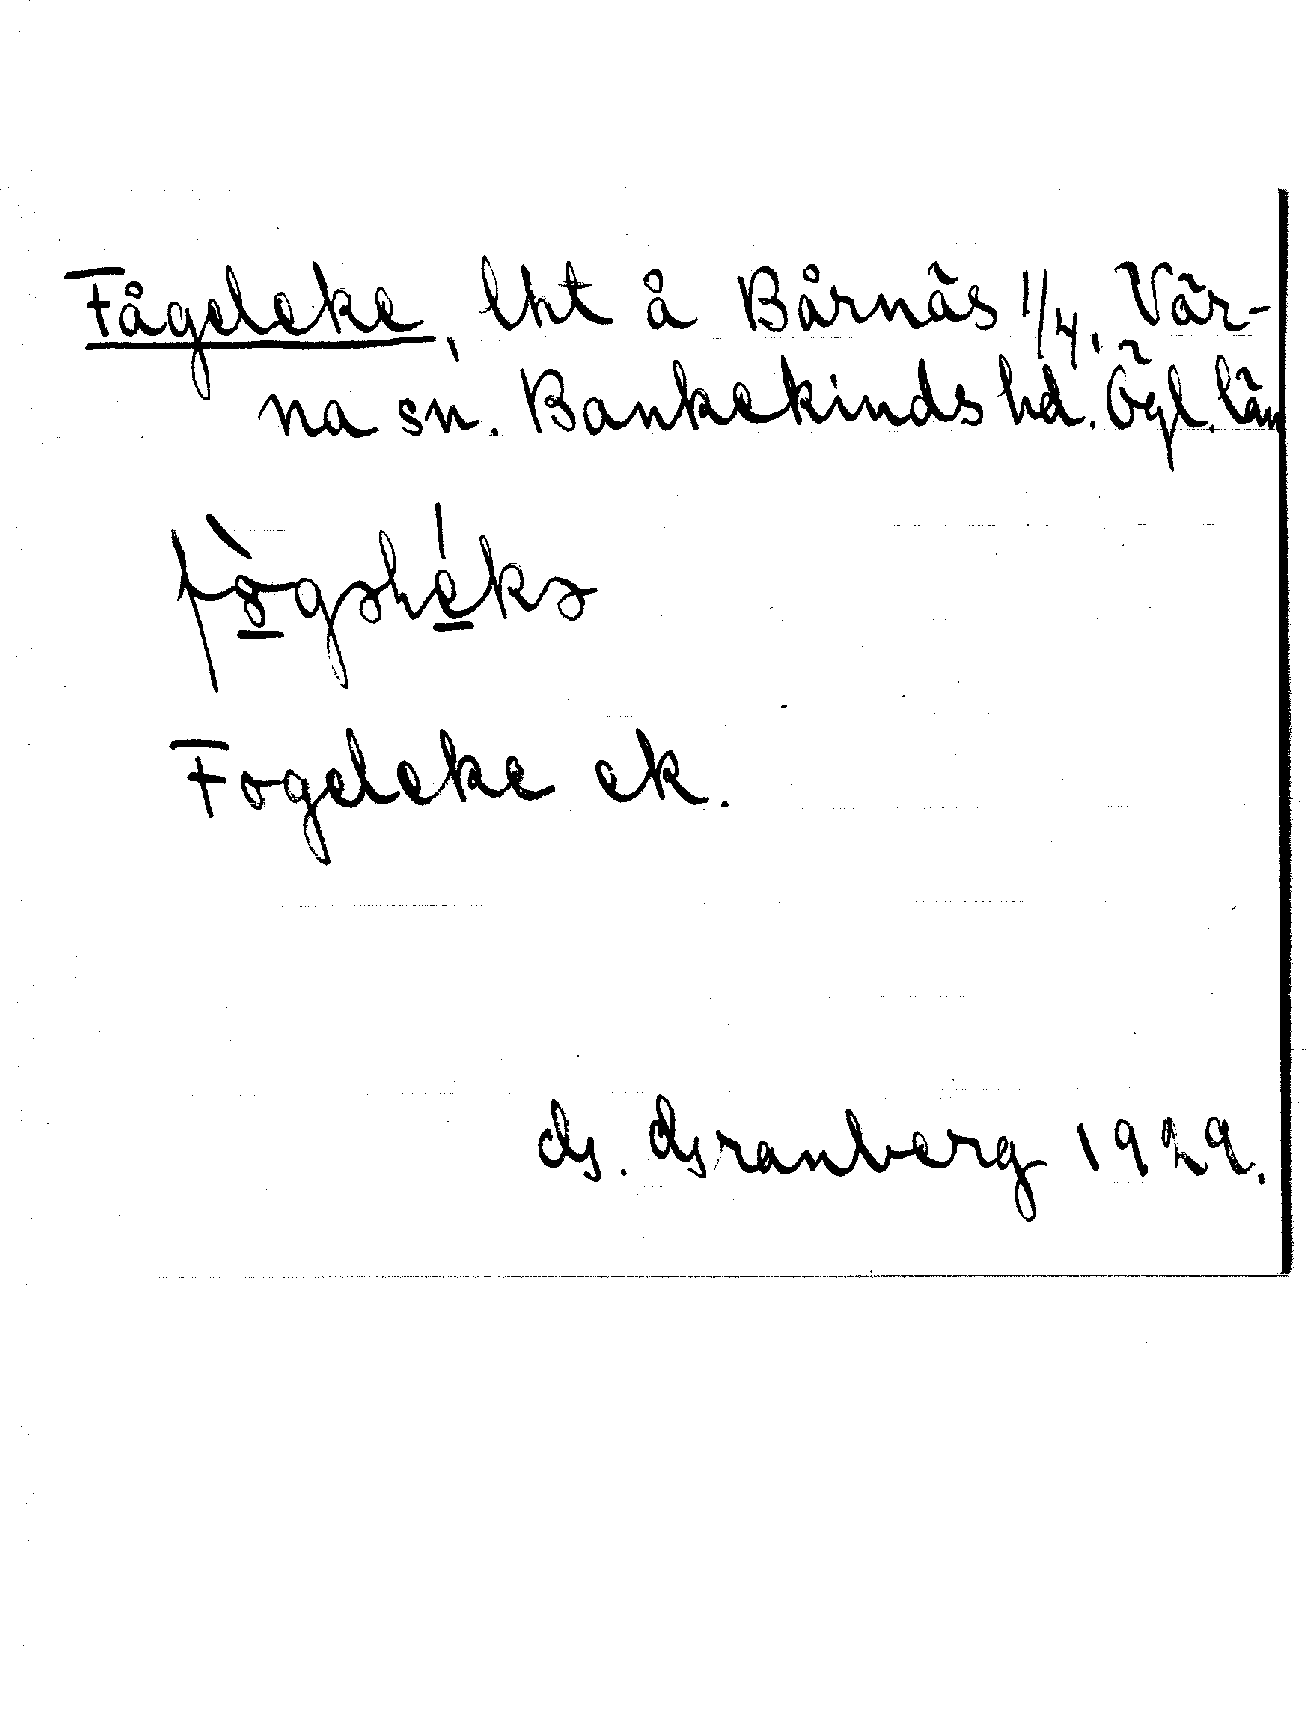 Fågeleke, lht å Bårnäs 1/4, Vär-
na sn. Bankekinds hd. Ögl. län
fò̱gəlé̱kə
Fogeleke ek.
G. Granberg 1929.